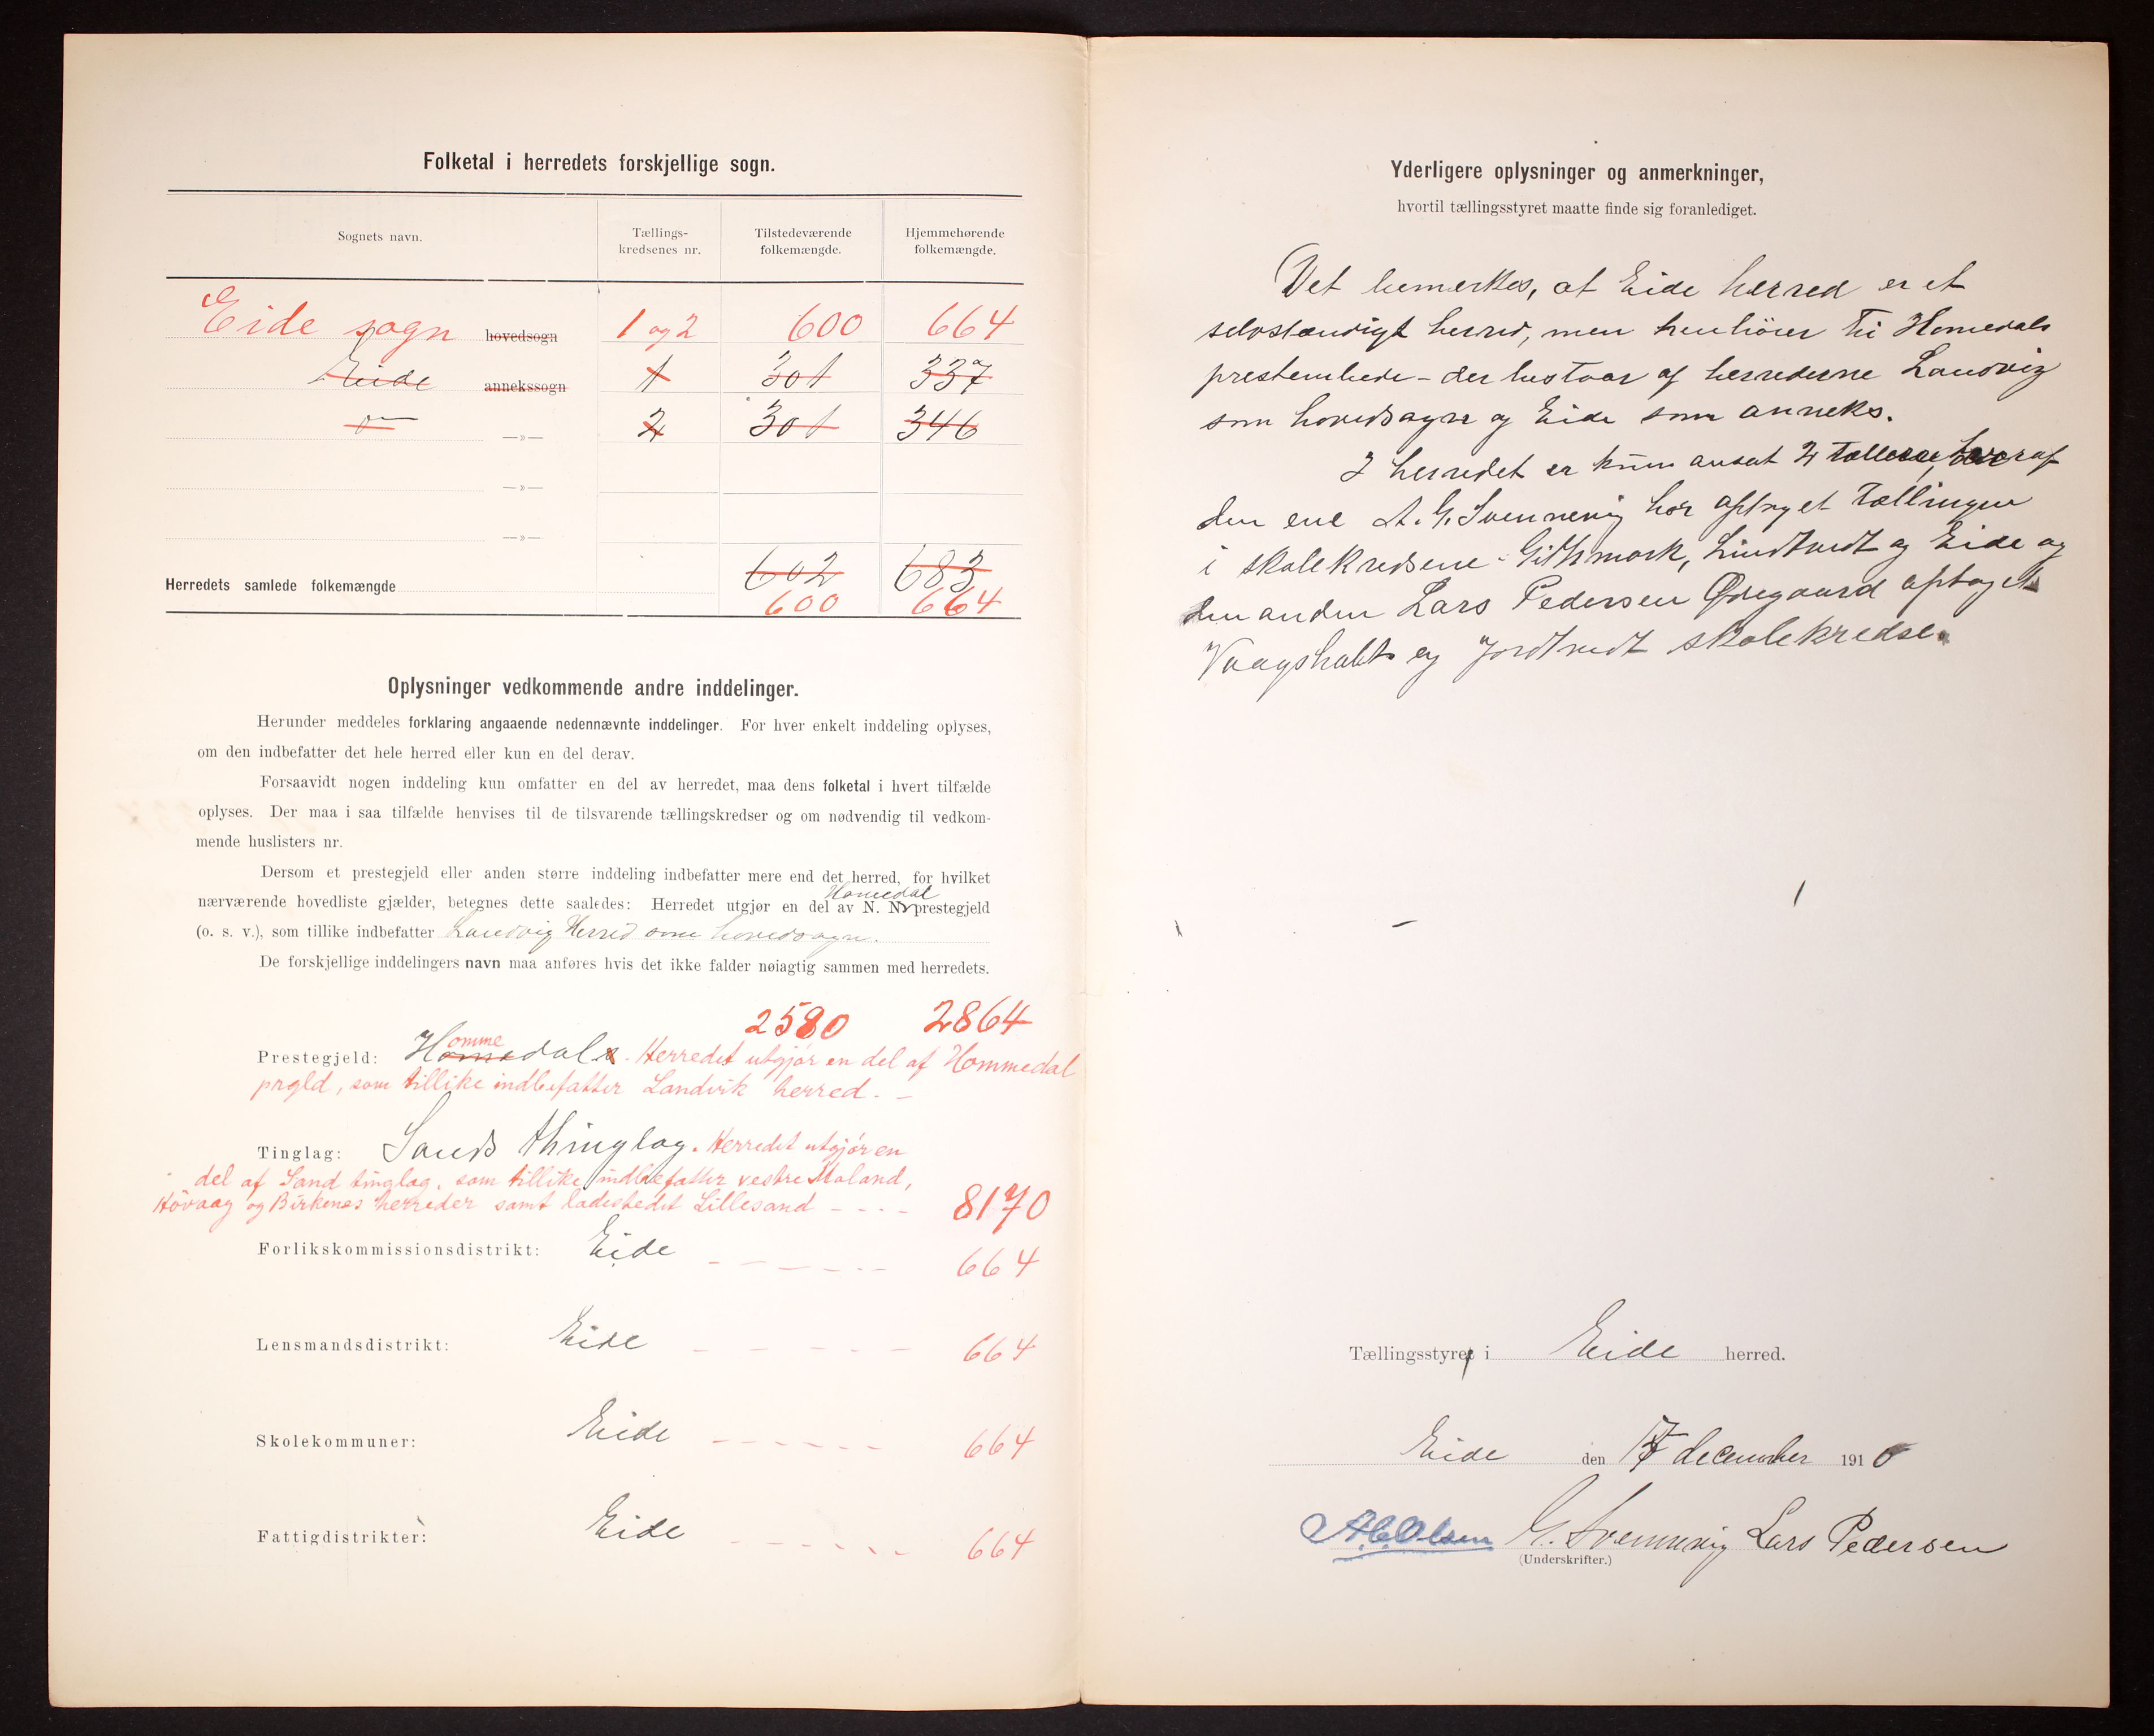 Folketal i herredets forskjellige sogn.
Sognets navn.
Tællings-
kredsenes nr.
Tilstedeværende
folkemængde.
Hjemmehørende
folkemængde.
Eide sogn hovedsogn 1 og 2 600 664
Eide annekssogn 1 301 337
—»— 2 301 346
—»—
—»—
602 683
Herredets samlede folkemængde
600 664
Oplysninger vedkommende andre inddelinger.
Herunder meddeles forklaring angaaende nedennævnte inddelinger. For hver enkelt inddeling oplyses,
om den indbefatter det hele herred eller kun en del derav.
Forsaavidt nogen inddeling kun omfatter en del av herredet, maa dens folketal i hvert tilfælde
oplyses. Der maa i saa tilfælde henvises til de tilsvarende tællingskredser og om nødvendig til vedkom-
mende huslisters nr.
Dersom et prestegjeld eller anden større inddeling indbefatter mere end det herred, for hvilket
Homedal
nærværende hovedliste gjælder, betegnes dette saaledes: Herredet utgjør en del av N. N. prestegjeld
(o. s. v.), som tillike indbefatter Landvig Herred som hovedsogn.
De forskjellige inddelingers navn maa anføres hvis det ikke falder nøiagtig sammen med herredets.
2580 2864
omme
Prestegjeld: Homedals. Herredet utgjør en del af Hommedal
prgld, som tillike indbefatter Landvik herred. —
Tinglag: Sands thinglag. Herredet utgjør en
del af Sand tinglag, som tillike indbefatter vestre Moland,
Høvaag og Birkenes herreder samt ladestedet Lillesand - - - - 8170
Forlikskommissionsdistrikt: Eide 664
Lensmandsdistrikt: Eide 664
Skolekommuner: Eide 664
Fattigdistrikter: Eide 664
Yderligere oplysninger og anmerkninger,
hvortil tællingsstyret maatte finde sig foranlediget.
Det bemerkes, at Eide herred er et
selvstændigt herred, men henhører til Homedals
prestembede - der bestaar af herrederne Landvig
som hovedsogn og Eide som anneks.
I herredet er kun ansat 2 tællere, hvoraf
den ene A. G. Svennevig har optaget tællingen
i skolekredsene Githmark, Lindtvedt og Eide og
den anden Lars Pedersen Ødegaard optaget
Vaagsholt og Jordtvedt skolekredse.
Tællingsstyret i Eide herred.
Eide den 17 december 1910
A. C. Olsen G. Svennevig Lars Pedersen
(Underskrifter.)